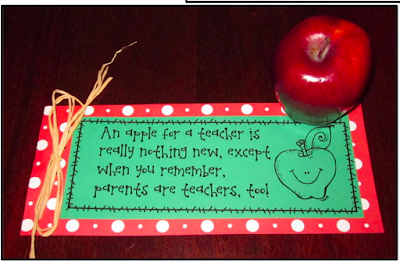 An apple for a teacher is
really nothing new, except
when you remember,
parents are teachers, too!